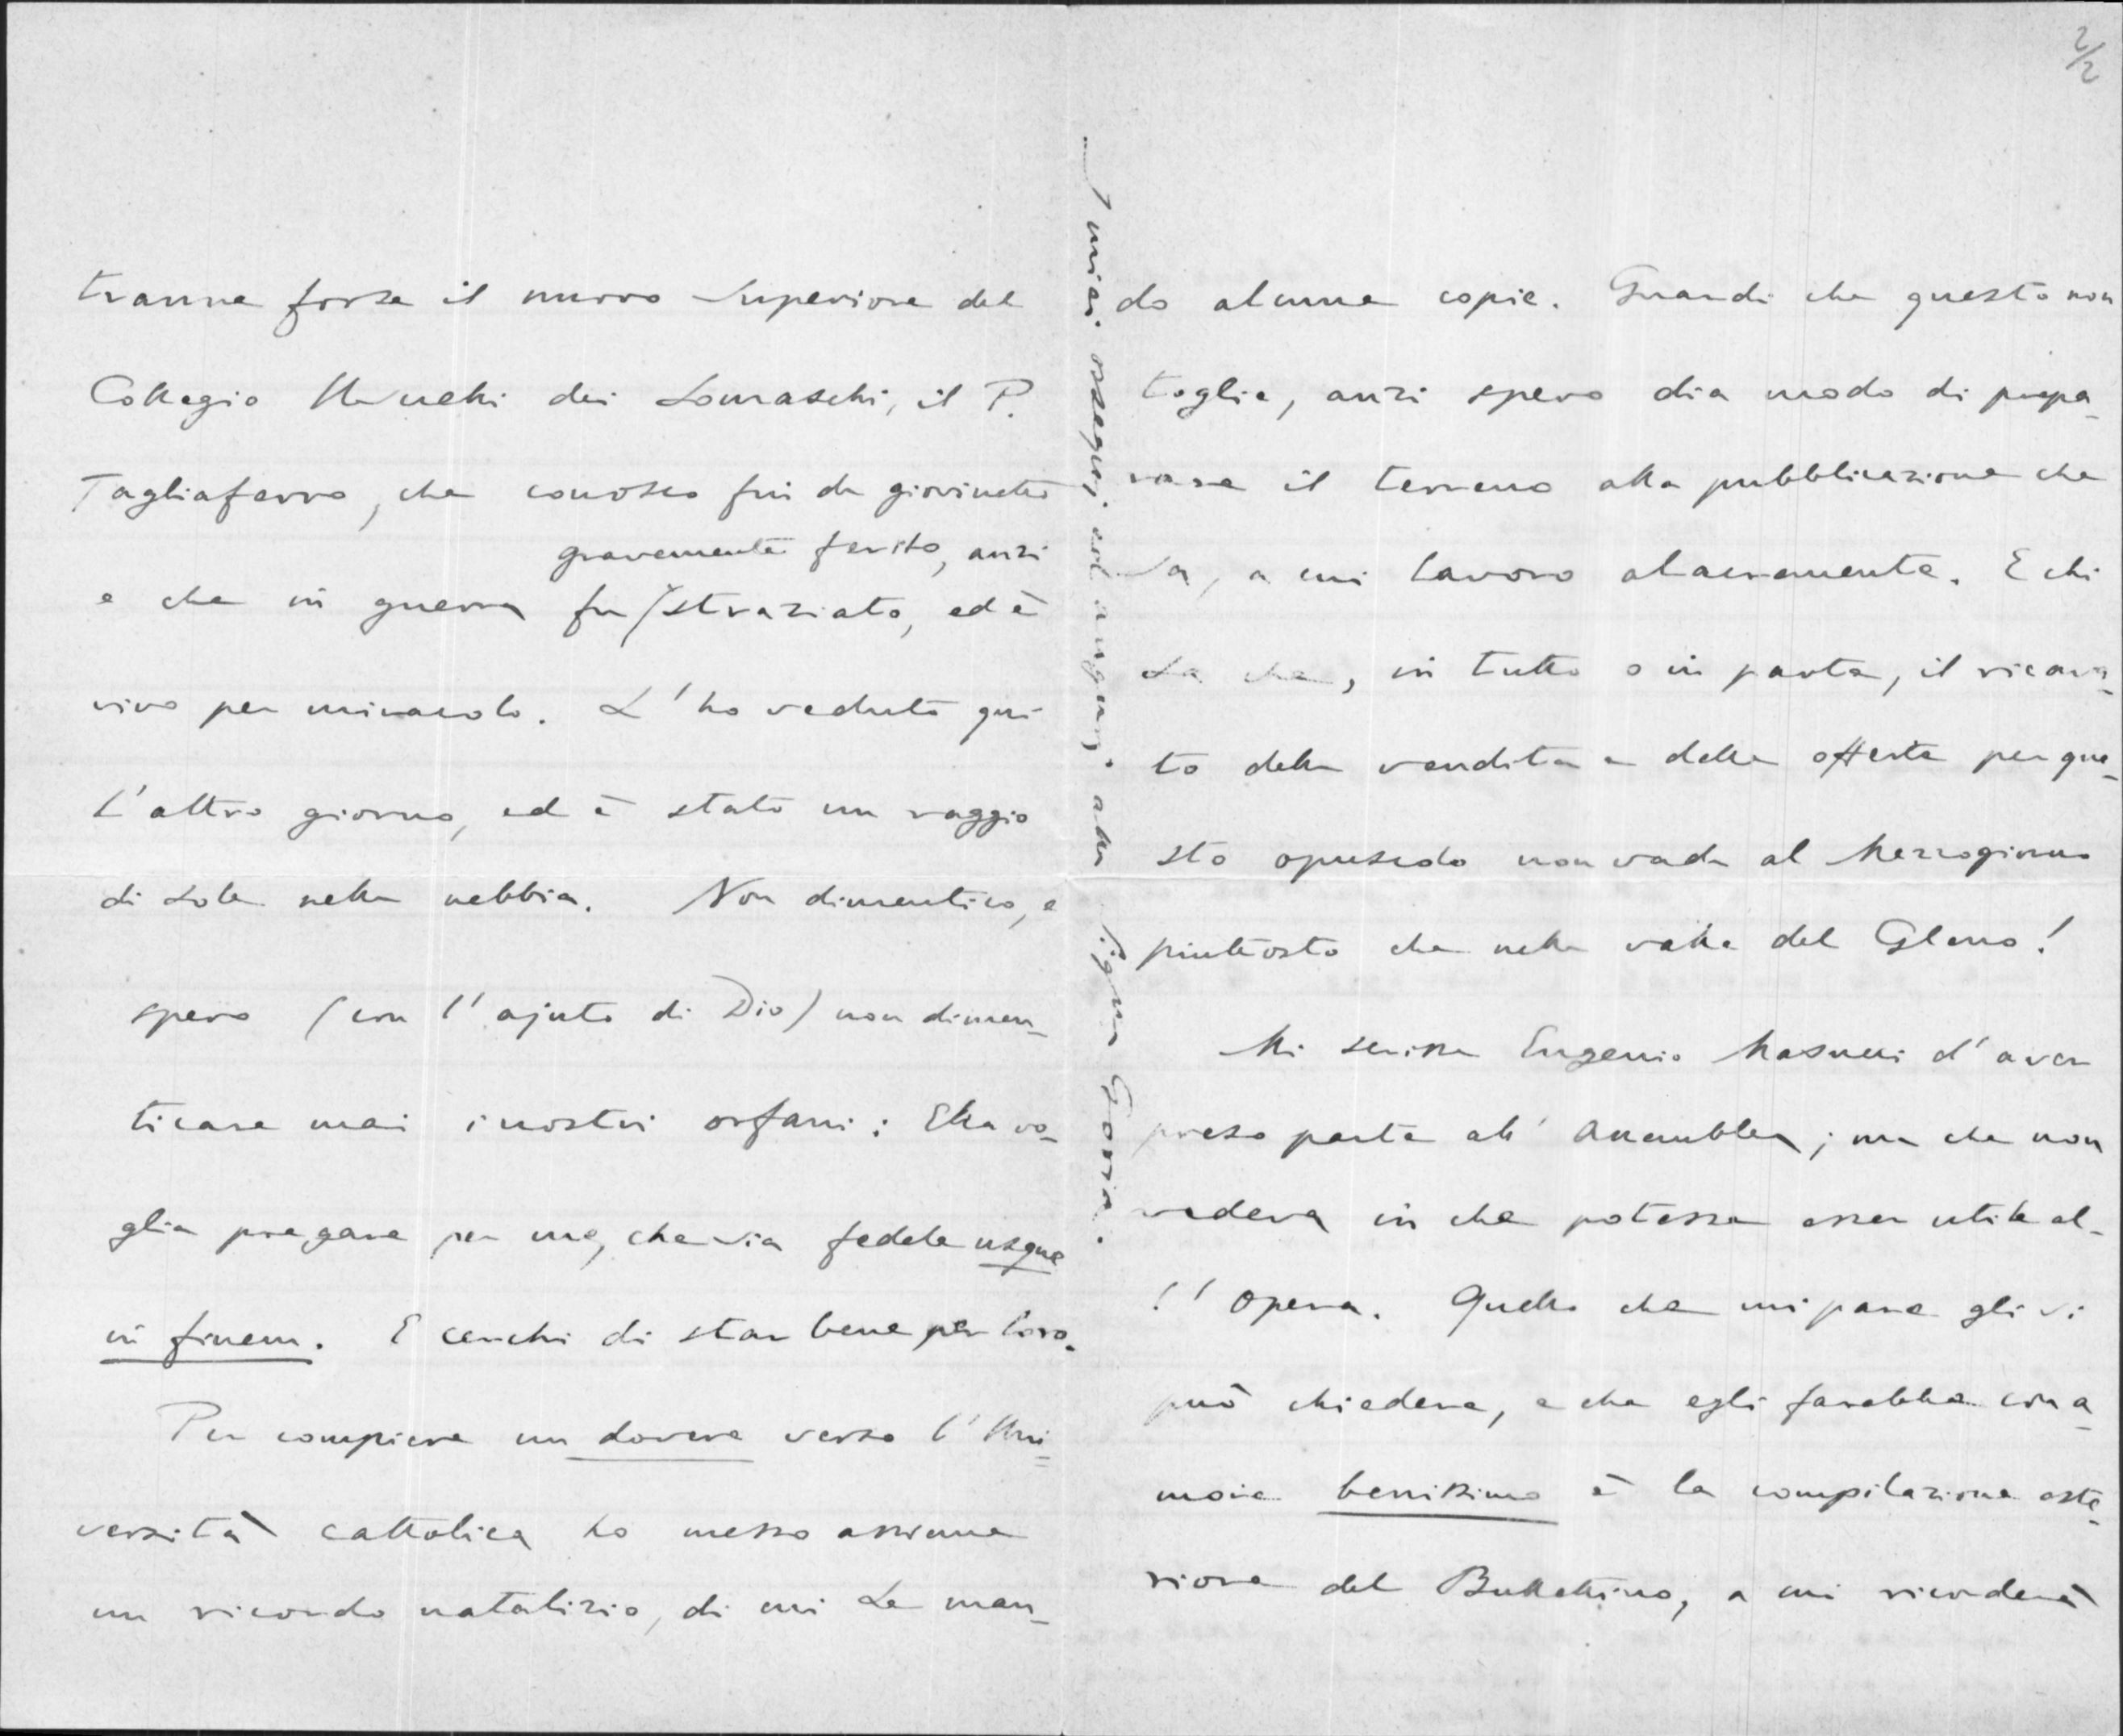 2/2
tranne forse il nuovo Superiore del
Collegio dei Somaschi, il P.
Tagliaferro, che conosco fin da giovinetto
gravemente ferito, anzi
e che in guerra fu / straziato, ed è
vivo per miracolo. L'ho veduto qui
l'altro giorno, ed è stato un raggio
di sole nella nebbia. Non dimentico, e
spero (con l'ajuto di Dio) non dimen-
ticare mai i nostri orfani: Ella vo-
glia pregare per me, che sia fedele usque
in finem. E cerchi di star bene per loro.
Per compiere un dovere verso l'Uni=
versità cattolica ho messo assieme
un ricordo natalizio, di cui Le man-
I miei ossequi ed auguri alla Sig.na Goria.
do alcune copie. Guardi che questo non
toglie, anzi spero dia modo di prepa-
rare il terreno alla pubblicazione che
Sa, a cui lavoro alacremente. E chi
sa che, in tutto o in parte, il ricava-
to della vendita e delle offerte per que-
sto opuscolo non vada al Mezzogiorno
piuttosto che nella valle del Gleno!
Mi scrisse Eugenio Masucci d'aver
preso parte all'Assemblea; ma che non
vedeva in che potesse esser utile al-
l'Opera. Quello che mi pare gli si
può chiedere, e che egli farebbe con a-
more benissimo è la compilazione este-
riore del Bullettino, a cui ricorderà